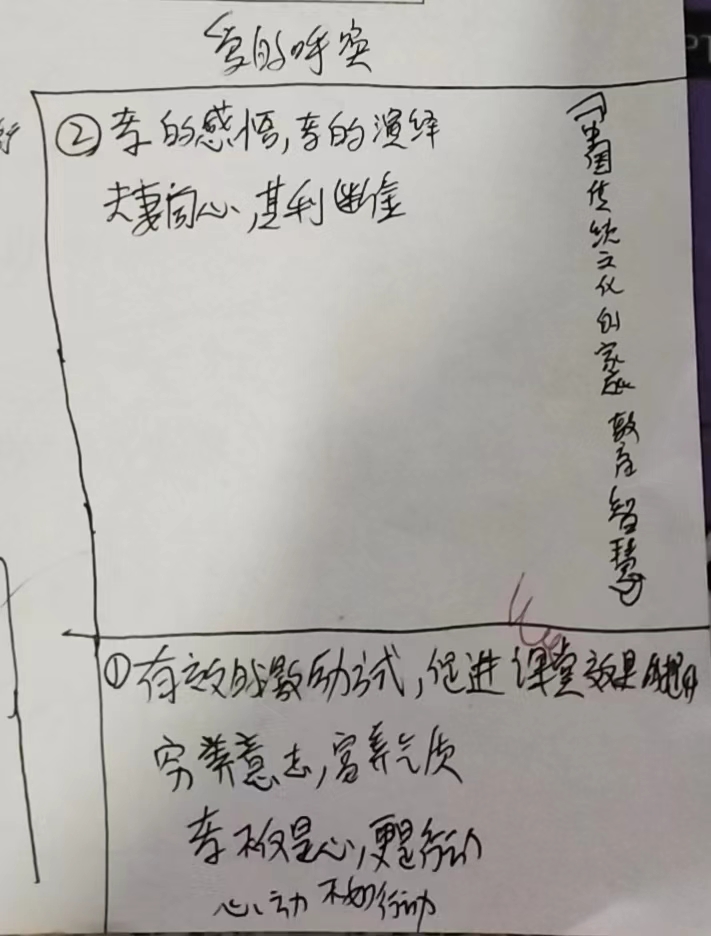 爱的呼唤
②孝的感悟,孝的演绎
夫妻同心,其利断金
《中国传统文化的家庭教育智慧》
①有效的激励方式,促进课堂效果的提升
穷养意志,富养气质
孝不仅是心,更是行动
心动不如行动